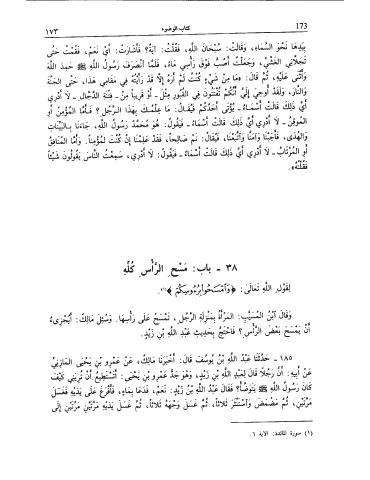 173 كتاب الوضوء ١٧٣
بِيَدِهَا نَحْوَ السَّمَاءِ، وَقَالَتْ: سُبْحَانَ اللَّهِ، فَقُلْتُ: آيَةٌ؟ فَأَشَارَتْ: أَيْ نَعَمْ، فَقُمْتُ حَتَّى
تَجَلَّانِي الْغَشْيُ، وَجَعَلْتُ أَصُبُّ فَوْقَ رَأْسِي مَاءً، فَلَمَّا انْصَرَفَ رَسُولُ اللَّهِ ﷺ حَمِدَ اللَّهَ
وَأَثْنَى عَلَيْهِ، ثُمَّ قَالَ: «مَا مِنْ شَيْءٍ كُنْتُ لَمْ أَرَهُ إِلَّا قَدْ رَأَيْتُهُ فِي مَقَامِي هَذَا، حَتَّى الْجَنَّةَ
وَالنَّارَ، وَلَقَدْ أُوحِيَ إِلَيَّ أَنَّكُمْ تُفْتَنُونَ فِي الْقُبُورِ مِثْلَ - أَوْ قَرِيباً مِنْ - فِتْنَةِ الدَّجَّالِ - لَا أَدْرِي
أَيَّ ذَلِكَ قَالَتْ أَسْمَاءُ - يُؤْتَى أَحَدُكُمْ فَيُقَالُ: مَا عِلْمُكَ بِهَذَا الرَّجُلِ؟ فَأَمَّا الْمُؤْمِنُ أَوِ
الْمُوقِنُ - لَا أَدْرِي أَيَّ ذَلِكَ قَالَتْ أَسْمَاءُ - فَيَقُولُ: هُوَ مُحَمَّدٌ رَسُولُ اللَّهِ، جَاءَنَا بِالْبَيِّنَاتِ
وَالْهُدَى، فَأَجَبْنَا وَآمَنَّا وَاتَّبَعْنَا، فَيُقَالُ: نَمْ صَالِحاً، فَقَدْ عَلِمْنَا إِنْ كُنْتَ لَمُؤْمِناً. وَأَمَّا الْمُنَافِقُ
أَوِ الْمُرْتَابُ - لَا أَدْرِي أَيَّ ذَلِكَ قَالَتْ أَسْمَاءُ - فَيَقُولُ: لَا أَدْرِي، سَمِعْتُ النَّاسَ يَقُولُونَ شَيْئاً
فَقُلْتُهُ».
٣٨ - باب: مَسْحِ الرَّأْسِ كُلِّهِ
لِقَوْلِ اللَّهِ تَعَالَى: ﴿وَامْسَحُوا بِرُءُوسِكُمْ﴾(١).
وَقَالَ ابْنُ الْمُسَيَّبِ: الْمَرْأَةُ بِمَنْزِلَةِ الرَّجُلِ، تَمْسَحُ عَلَى رَأْسِهَا. وَسُئِلَ مَالِكٌ: أَيُجْزِىءُ
أَنْ يَمْسَحَ بَعْضَ الرَّأْسِ؟ فَاحْتَجَّ بِحَدِيثِ عَبْدِ اللَّهِ بْنِ زَيْدٍ.
١٨٥ - حَدَّثَنَا عَبْدُ اللَّهِ بْنُ يُوسُفَ قَالَ: أَخْبَرَنَا مَالِكٌ، عَنْ عَمْرِو بْنِ يَحْيَى الْمَازِنِيِّ
عَنْ أَبِيهِ: أَنَّ رَجُلاً قَالَ لِعَبْدِ اللَّهِ بْنِ زَيْدٍ، وَهُوَ جَدُّ عَمْرِو بْنِ يَحْيَى: أَتَسْتَطِيعُ أَنْ تُرِيَنِي كَيْفَ
كَانَ رَسُولُ اللَّهِ ﷺ يَتَوَضَّأُ؟ فَقَالَ عَبْدُ اللَّهِ بْنُ زَيْدٍ: نَعَمْ، فَدَعَا بِمَاءٍ، فَأَفْرَغَ عَلَى يَدَيْهِ فَغَسَلَ
مَرَّتَيْنِ، ثُمَّ مَضْمَضَ وَاسْتَنْثَرَ ثَلَاثاً، ثُمَّ غَسَلَ وَجْهَهُ ثَلَاثاً، ثُمَّ غَسَلَ يَدَيْهِ مَرَّتَيْنِ مَرَّتَيْنِ إِلَى
(١) سورة المائدة: الآية ٦.